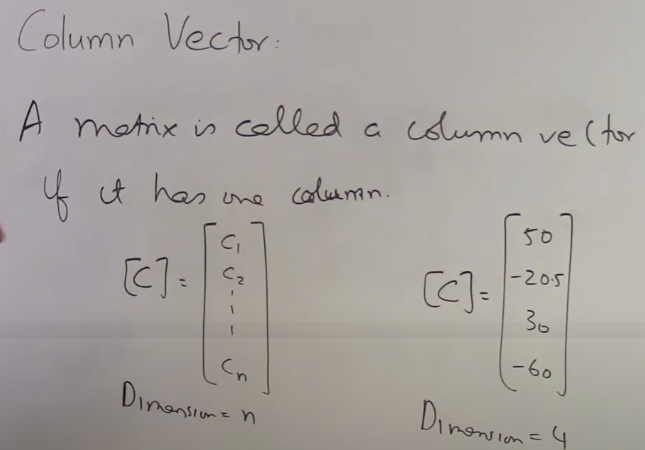 Column Vector:
A matrix is called a column vector
if it has one column.
[C] = [C1
C2
Cn]
Dimension = n
[C] = [50
-20.5
30
-60]
Dimension = 4